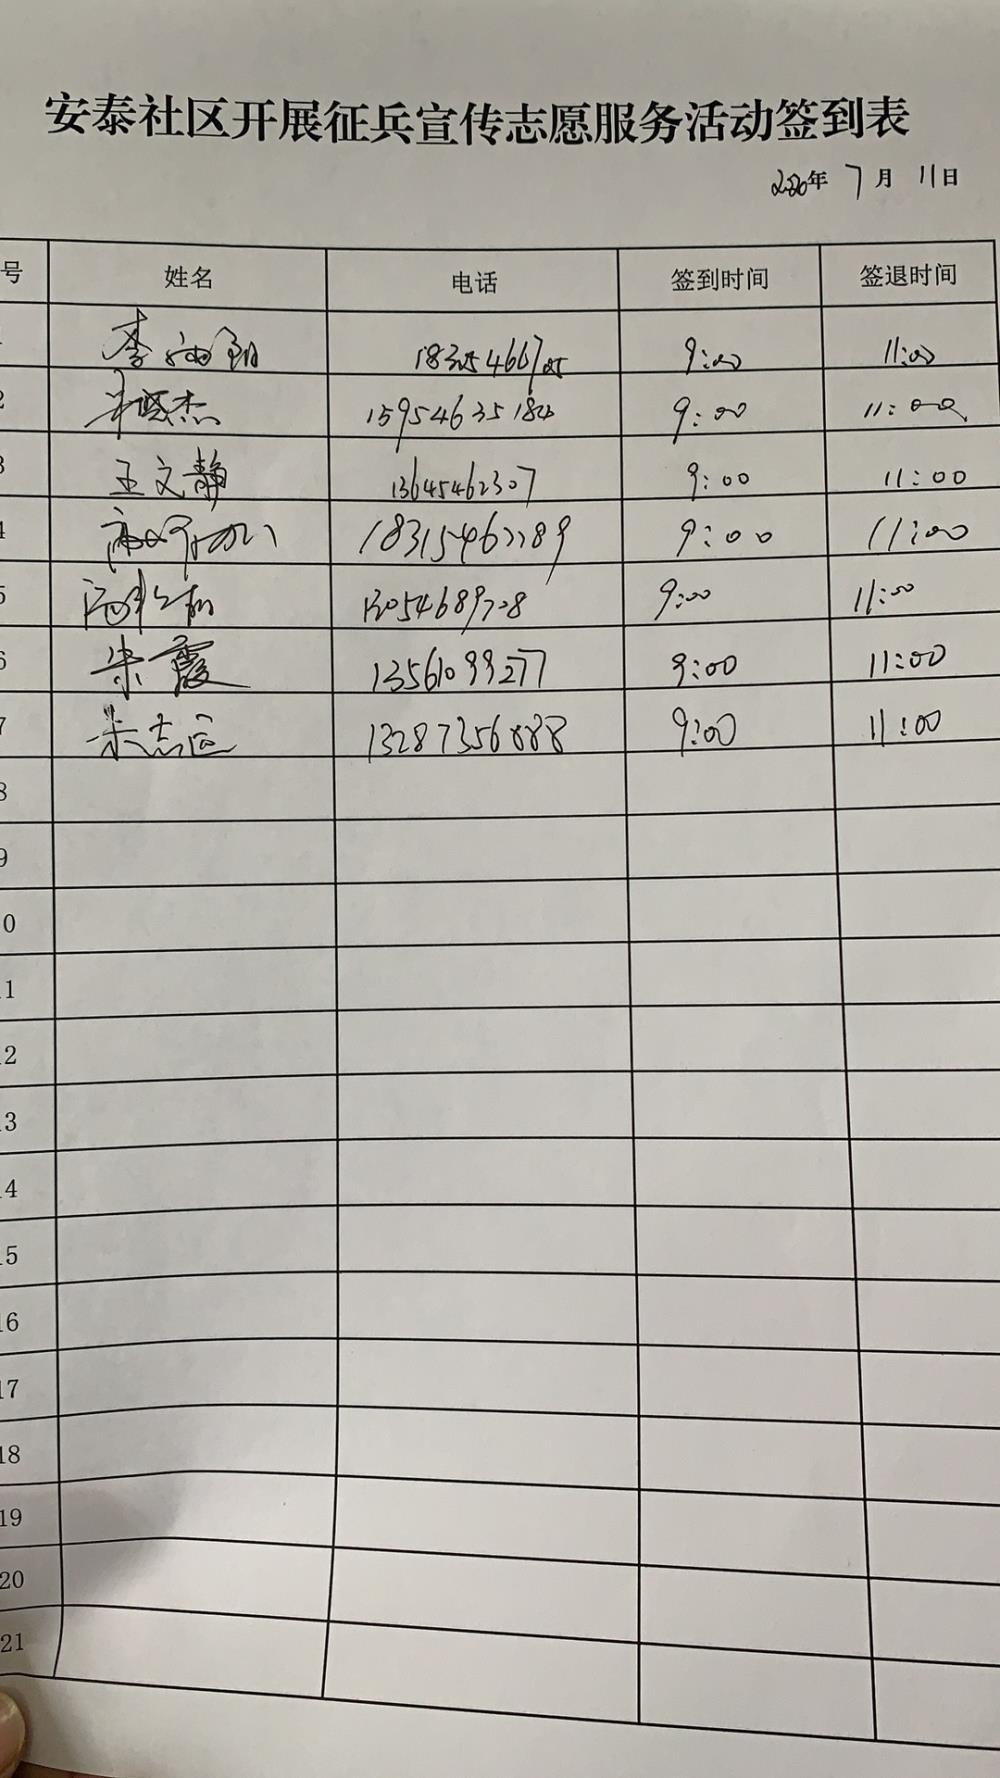 安泰社区开展征兵宣传志愿服务活动签到表
2020年 7月 11日
号 姓名 电话 签到时间 签退时间
9:00 11:00
2 杰 15954635182 9:00 11:00
3 王文静 13645462307 9:00 11:00
4 18315462289 9:00 11:00
5 13054689708 9:00 11:00
6 宋霞 13561099277 9:00 11:00
7 宋志远 13287356888 9:00 11:00
8
9
0
1
2
3
4
15
16
17
18
19
20
21